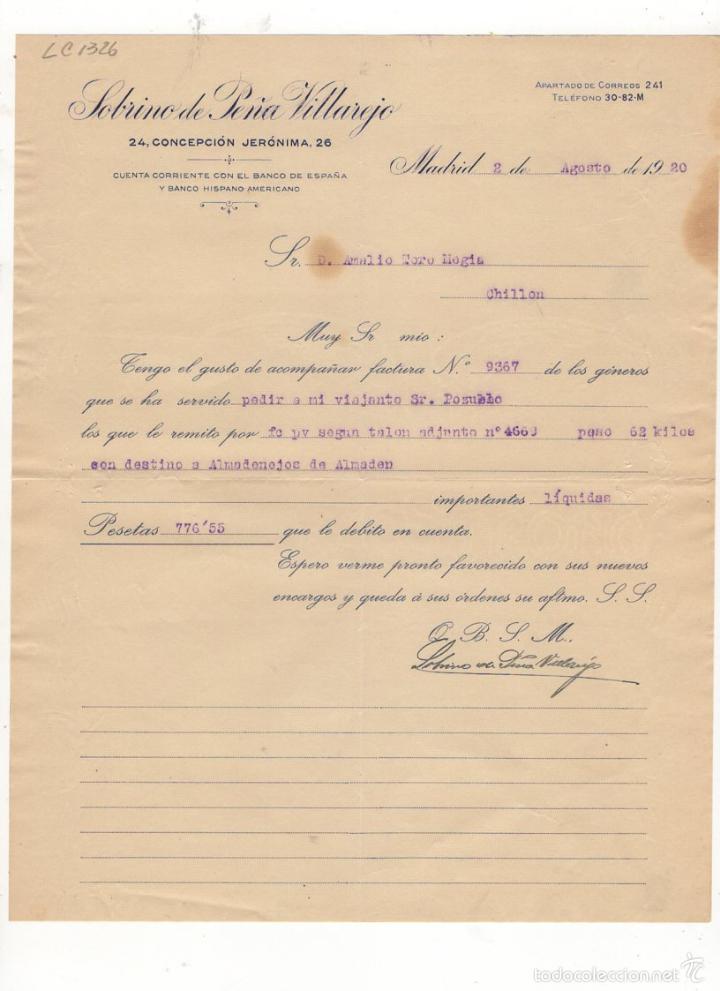 LC1326
Sobrino de Peña Villarejo
24, CONCEPCIÓN JERÓNIMA, 26
CUENTA CORRIENTE CON EL BANCO DE ESPAÑA
Y BANCO HISPANO AMERICANO
APARTADO DE CORREOS 241
TELÉFONO 30-82-M
Madrid 2 de Agosto de 1920
Sr. D. Amalio Toro Mogia
Chillon
Muy Sr mio:
Tengo el gusto de acompañar factura N.º 9367 de los géneros
que se ha servido pedir a mi viajante Sr. Pozuelo
los que le remito por fc pv segun talon adjunto nº 4663 peso 62 kilos
con destino a Almadenejos de Almaden
importantes líquidas
Pesetas 776'55 que le debito en cuenta.
Espero verme pronto favorecido con sus nuevos
encargos y queda á sus órdenes su aftmo. S. S.
Q. B. S. M.,
Sobrino de Peña Villarejo
todocoleccion.net